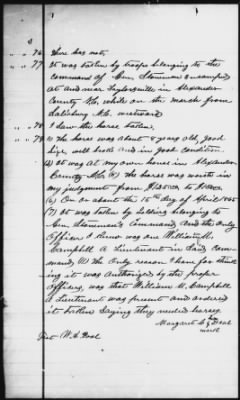 " " 76 There has not,
" " 77 It was taken by troops belonging to the
command of Gen. Stoneman encamped
at and near Taylorsville in Alexander
County N.C. while on the march from
Salisbury N.C. westward
" " 78 I saw the horse taken,
" " 79 (1) The horse was about 8 years old, good
size, well built and in good condition
(2) It was at my own house in Alexander
County N.C. (5) The horse was worth in
my judgment from
(6) On or about the 15th day of April 1865
(7) It was taken by Soldiers belonging to
Gen. Stoneman's Command, and the only
officer I knew was one William M.
Campbell a Lieutenant in said com-
mand, (11) The only reason I have for think-
ing it was authorized by the proper
officers, was that William M. Campbell
a Lieutenant was present and ordered
it taken saying they needed horses
Margaret her
mark
Test W. A. Pool